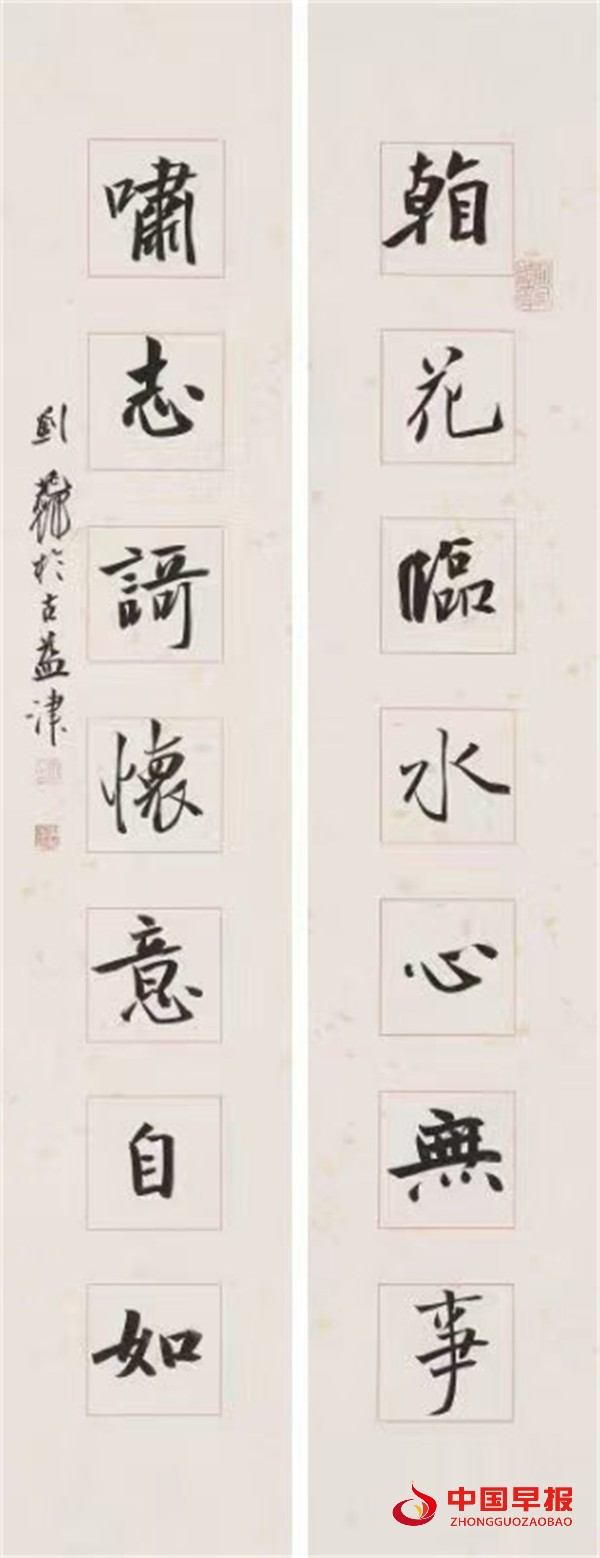 看花臨水心無事
嘯志謌懷意自如
劉
於古益津
中国早报
ZHONGGUOZAOBAO